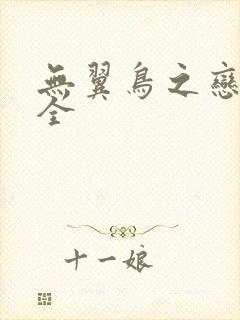 無翼鳥之戀
全
十一娘